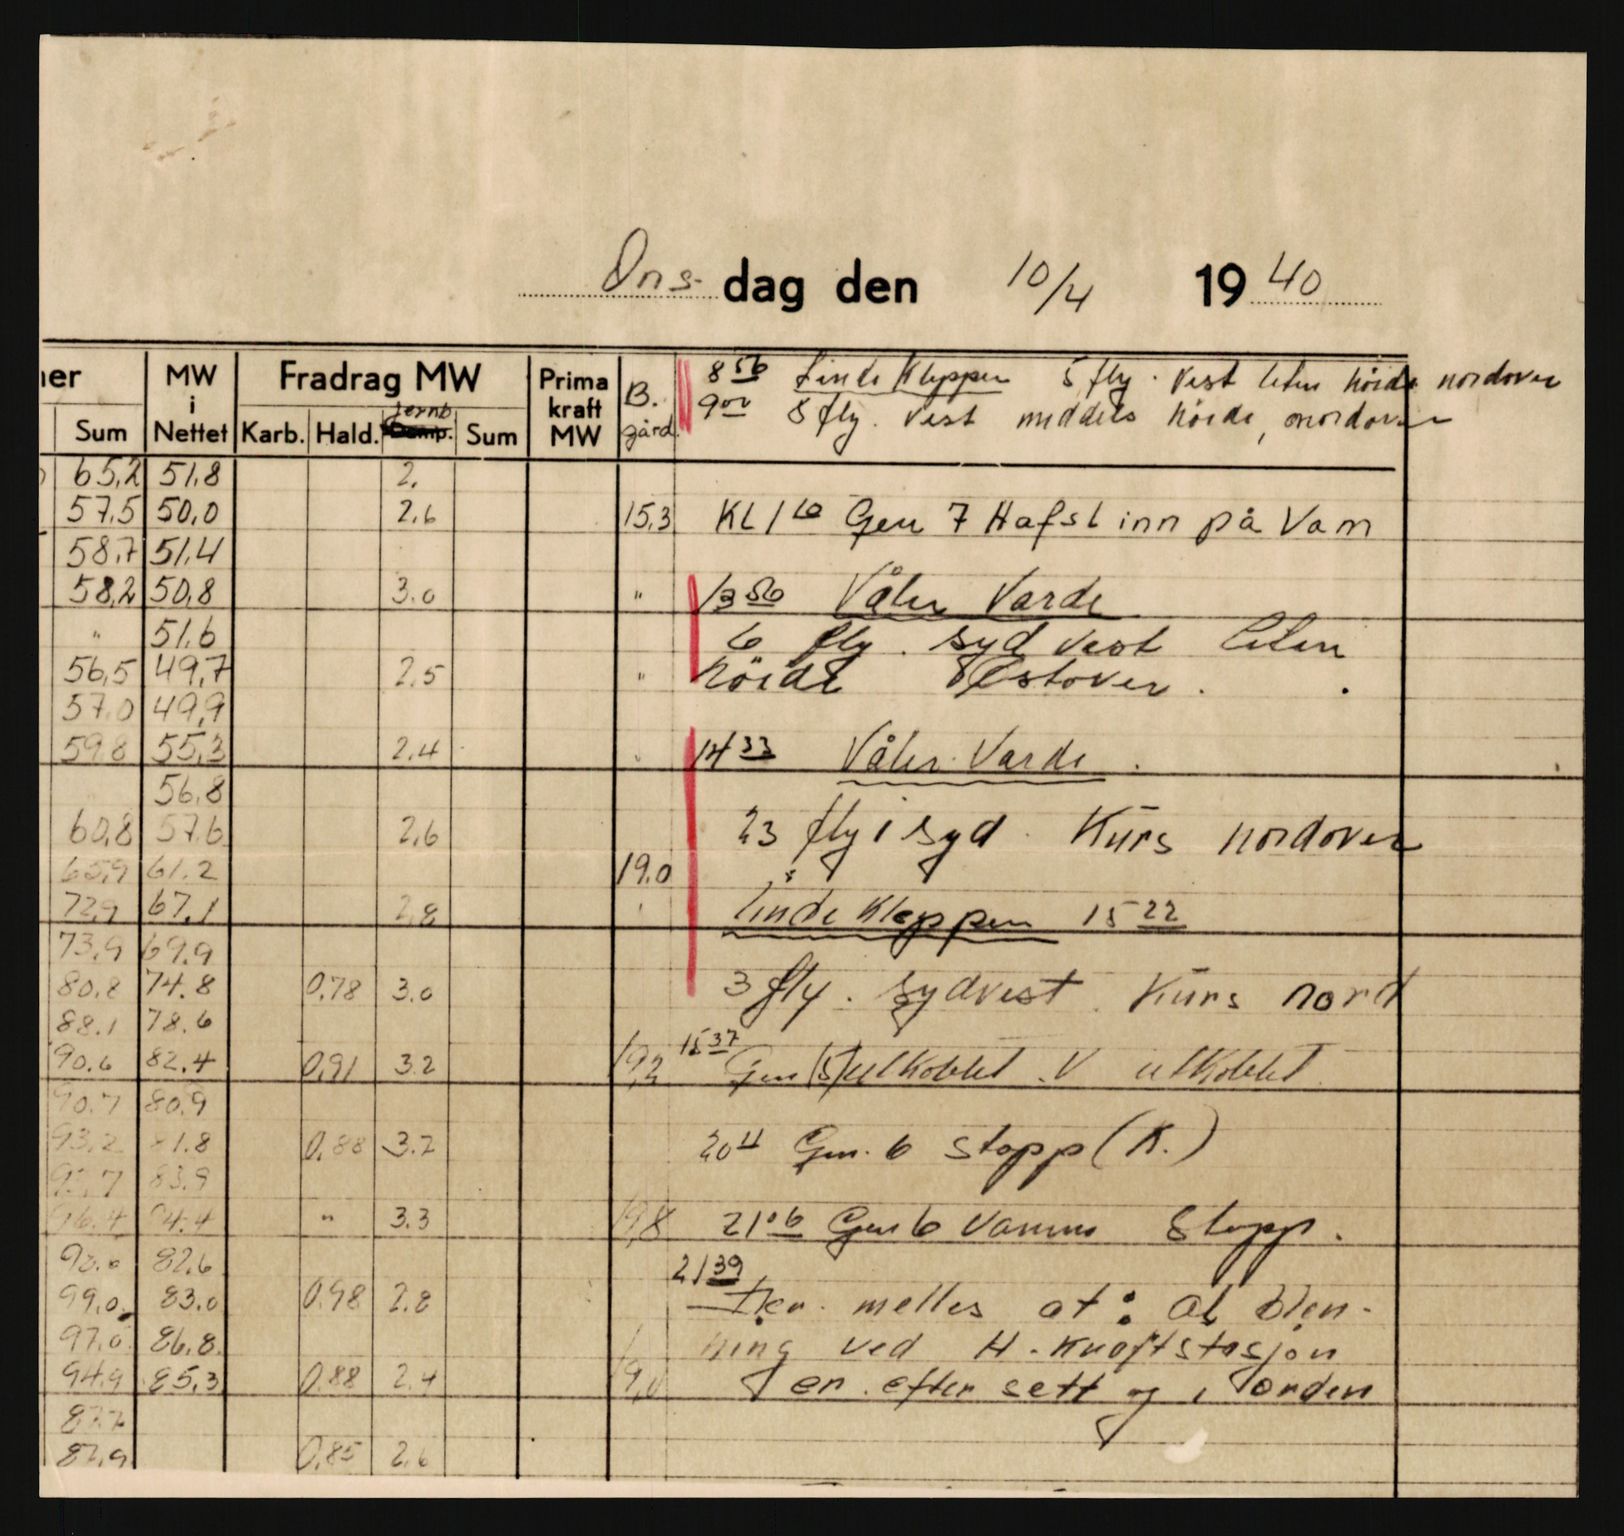 Ons-dag den 10/4 1940
ner MW i Nettet Fradrag MW Prima kraft MW B. gård.
Sum Karb. Hald. Jernb Sum
8 56 Linde Kleppen 5 fly. Vest liten höide nordover
9 00 8 fly. Vest middels höide, nordover
65,2 51,8 2,
57,5 50,0 2,6 15,3 KL 1 10 Gen 7 Hafsl inn på Vam
58,7 51,4
58,2 50,8 3.0 " 13 56 Våler Varde
" 51,6 6 fly. syd vest liten
56,5 49,7 2,5 " höide Vestover.
57,0 49,9
59,8 55,3 2,4 " 14 33 Våler Varde.
56,8
60,8 57,6 2,6 23 fly i syd. Kurs nordover
65,9 61.2 19.0
72,9 67,1 2,8 Linde Kleppen 15 22
73,9 69.9
80,8 74.8 0,78 3.0 3 fly. sydvest. Kurs nord
88.1 78.6
90.6 82,4 0,91 3.2 19,2 15 37 Gen (5) utkoblet. V utkoblet
90.7 80.9
93,2 81.8 0,88 3.2 20 4 Gen. 6 stopp (K.)
83.9
96.4 3.3 " 19,8 21 06 Gen 6 Vamma Stopp.
82,6 21 39
99,0 83.0 0,98 2.8 Der. melles at: al blen-
97,0 86,8 ning ved H. Kraftstasjon
94,9 85,3 0,88 2.4 19,0 er efter sett og i orden
82,9 0,85 2,6